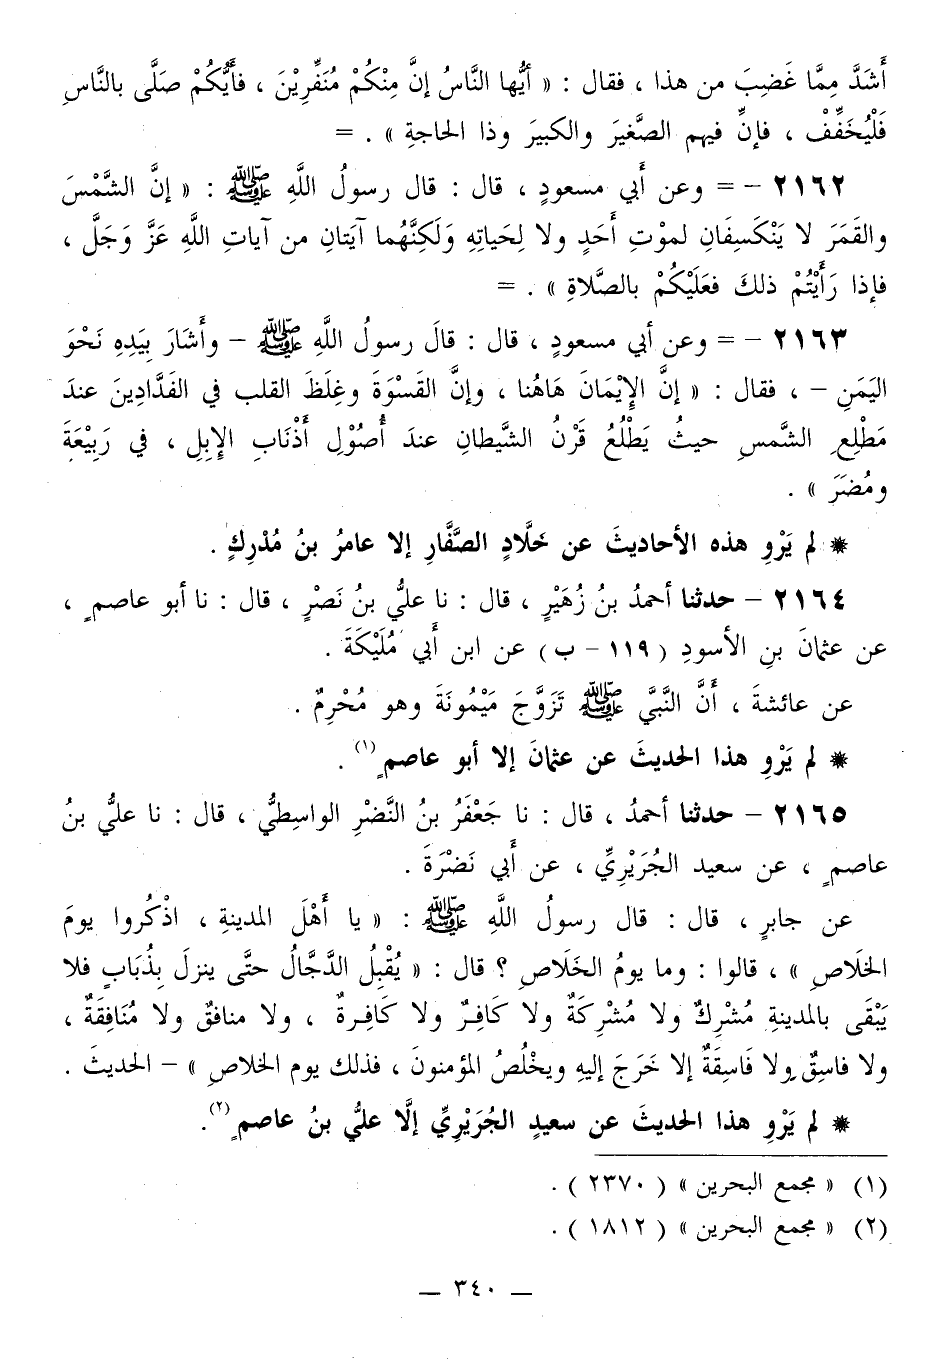 أَشَدَّ مِمَّا غَضِبَ من هذا ، فقال : « أَيُّها النَّاسُ إنَّ مِنْكُمْ مُنَفِّرِيْنَ ، فأَيُّكُمْ صَلَّى بالنَّاسِ
فَلْيُخَفِّفْ ، فإنِّ فيهم الصَّغيرَ والكبيرَ وذا الحاجةِ » . =
٢١٦٢ – = وعن أبي مسعودٍ ، قال : قال رسولُ اللَّهِ ﷺ : « إنَّ الشَّمْسَ
والقَمَرَ لا يَنْكَسِفَانِ لموْتِ أَحَدٍ ولا لِحَياتِهِ وَلَكِنَّهُما آيَتانِ من آياتِ اللَّهِ عَزَّ وَجَلَّ ،
فإذا رَأَيْتُمْ ذلكَ فعَلَيْكُمْ بالصَّلاةِ » . =
٢١٦٣ – = وعن أبي مسعودٍ ، قال : قالَ رسولُ اللَّهِ ﷺ – وأَشَارَ بِيَدِهِ نَحْوَ
اليَمَنِ – ، فقال : « إنَّ الإِيْمَانَ هَاهُنا ، وإنَّ القَسْوَةَ وغِلَظَ القلب في الفَدَّادِينَ عندَ
مَطْلِعِ الشَّمسِ حيثُ يَطْلُعُ قَرْنُ الشَّيطانِ عندَ أُصُوْلِ أَذْنَابِ الإِبِلِ ، في رَبِيْعَةَ
ومُضَرَ » .
* لم يَرْوِ هذه الأحاديثَ عن خَلَّادٍ الصَّفَّارِ إلا عامرُ بنُ مُدْرِكٍ .
٢١٦٤ – حدثنا أحمدُ بنُ زُهَيْرٍ ، قال : نا عليُّ بنُ نَصْرٍ ، قال : نا أبو عاصمٍ ،
عن عثمانَ بنِ الأسودِ ( ١١٩ – ب ) عن ابن أَبي مُلَيْكَةَ .
عن عائشةَ ، أَنَّ النَّبيَّ ﷺ تَزَوَّجَ مَيْمُونَةَ وهو مُحْرِمٌ .
* لم يَرْوِ هذا الحديثَ عن عثمانَ إلا أبو عاصمٍ (١) .
٢١٦٥ – حدثنا أحمدُ ، قال : نا جَعْفَرُ بنُ النَّضْرِ الواسِطِيُّ ، قال : نا عليُّ بنُ
عاصمٍ ، عن سعيد الجُرَيْرِيِّ ، عن أَبي نَضْرَةَ .
عن جابرٍ ، قال : قال رسولُ اللَّهِ ﷺ : « يا أَهْلَ المدينةِ ، اذْكُروا يومَ
الخلَاصِ » ، قالوا : وما يومُ الخَلَاصِ ؟ قال : « يُقْبِلُ الدَّجَّالُ حتَّى ينزلَ بِذُبَابٍ فلا
يَبْقَى بالمدينةِ مُشْرِكٌ ولا مُشْرِكَةٌ ولا كَافِرٌ ولا كَافِرةٌ ، ولا منافقٌ ولا مُنَافِقَةٌ ،
ولا فاسِقٌ ولا فَاسِقَةٌ إلا خَرَجَ إليهِ ويخْلُصُ المؤمنونَ ، فذلك يوم الخلاصِ » – الحديثَ .
* لم يَرْوِ هذا الحديثَ عن سعيدٍ الجُرَيْرِيِّ إلَّا عليُّ بنُ عاصمٍ (٢) .
(١) « مجمع البحرين » ( ٢٣٧٠ ) .
(٢) « مجمع البحرين » ( ١٨١٢ ) .
— ٣٤٠ —